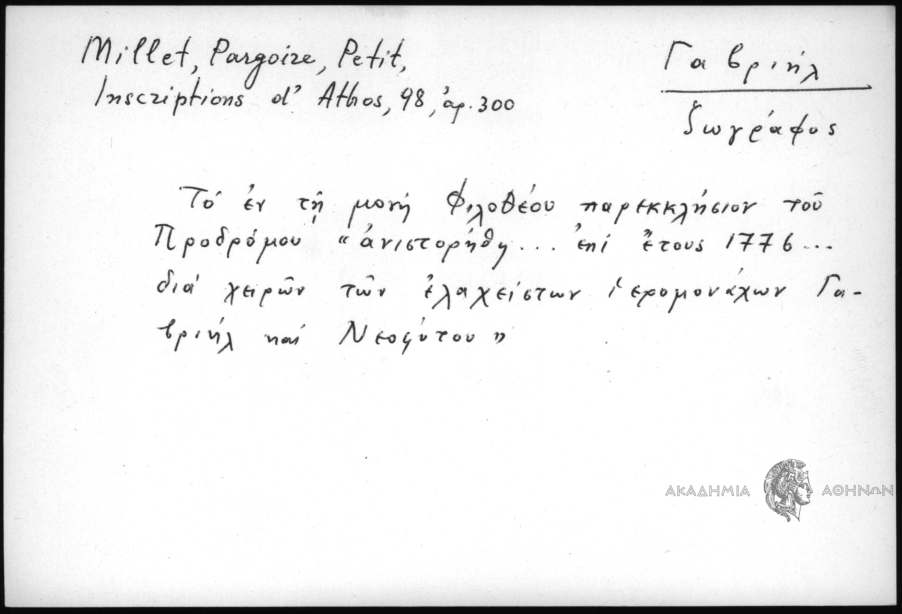 Millet, Pargoire, Petit,
Inscriptions d' Athos, 98, ἀρ. 300
Γαβριήλ
ζωγράφος
Τό ἐν τῇ μονῇ Φιλοθέου παρεκκλήσιον τοῦ
Προδρόμου "ἀνιστορήθη... ἐπί ἔτους 1776...
διά χειρῶν τῶν ἐλαχείστων ἱερομονάχων Γα-
βριήλ καί Νεοφύτου"
ΑΚΑΔΗΜΙΑ ΑΘΗΝΩΝ